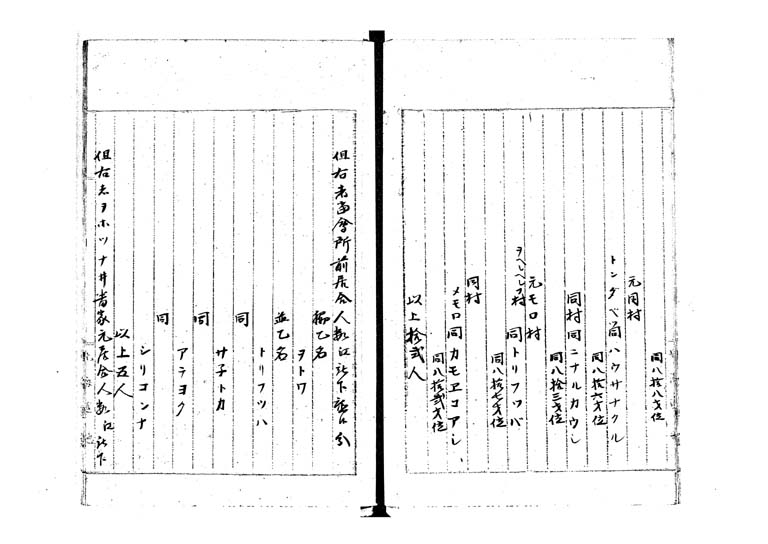 同八拾八才位
元同村
トンケベ同ハウサナクル
同八拾六才位
同村同ニナルカウシ
同八拾三才位
元モロ村
ヲベレベレフ村同トリフツバ
同八拾七才位
同村
メモロ同カモヱコアシ
同八拾弐才位
以上拾弐人
但右者当会所前居合人数江被下被仰分
惣乙名
ヲトワ
並乙名
トリフツハ
同
サ子トカ
同
アテヨク
同
シリコンナ
以上五人
但右者ヲホツナ井番家元居合人数江被下